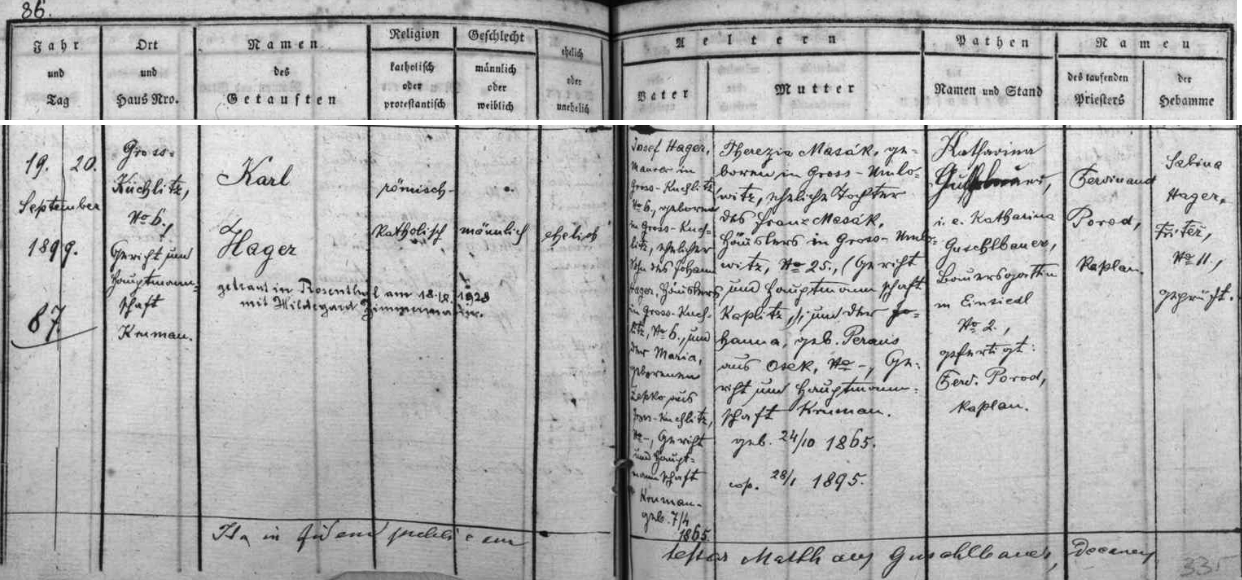 86.
Jahr
und
Tag
Ort
und
Haus Nro.
Namen
des
Getauften
Religion
katholisch
oder
protestantisch
Geschlecht
männlich
oder
weiblich
ehelich
oder
unehelich
Aeltern
Vater
Mutter
Pathen
Namen und Stand
Namen
des taufenden
Priesters
der
Hebamme
19. 20.
September
1899.
67
Gross-
Kuchlitz,
No 6.,
Gericht und
Hauptmann-
schaft
Krumau.
Karl
Hager
getraut in Rosenthal am 18.IX.1928
mit Hildegard
römisch-
katholisch
männlich
ehelich
Josef Hager,
Maurer in
Gross-Kuchlitz,
No 6., geboren
in Gross-Kuch-
litz, ehelicher
Sohn des Johann
Hager, Häuslers
in Gross-Kuch-
litz, No 6., und
der Maria,
geborenen
aus
Gross-Kuchlitz,
No -, Gericht
und Haupt-
mannschaft
Krumau.
geb. 7/4
1865.
Therezia Masák, ge-
boren in Gross-Umlo-
witz, eheliche Tochter
des Franz Masák,
Häuslers in Gross-Umlo-
witz, No 25., (Gericht
und Hauptmannschaft
Kaplitz,), und der Jo-
hanna, geb.
aus Osek, No -, Ge-
richt und Hauptmann-
schaft Krumau.
geb. 24/10 1865.
cop. 28/1 1895.
Katharina
i. e. Katharina
Guschlbauer,
Bauersgattin
in Einsiedl
No 2.,
gefertigt:
Ferd. Porod,
Kaplan.
Ferdinand
Porod,
Kaplan.
Sabina
Hager,
No 11.,
geprüft.
Ita in fidem publicam
testor Matthaeus Guschlbauer,
335